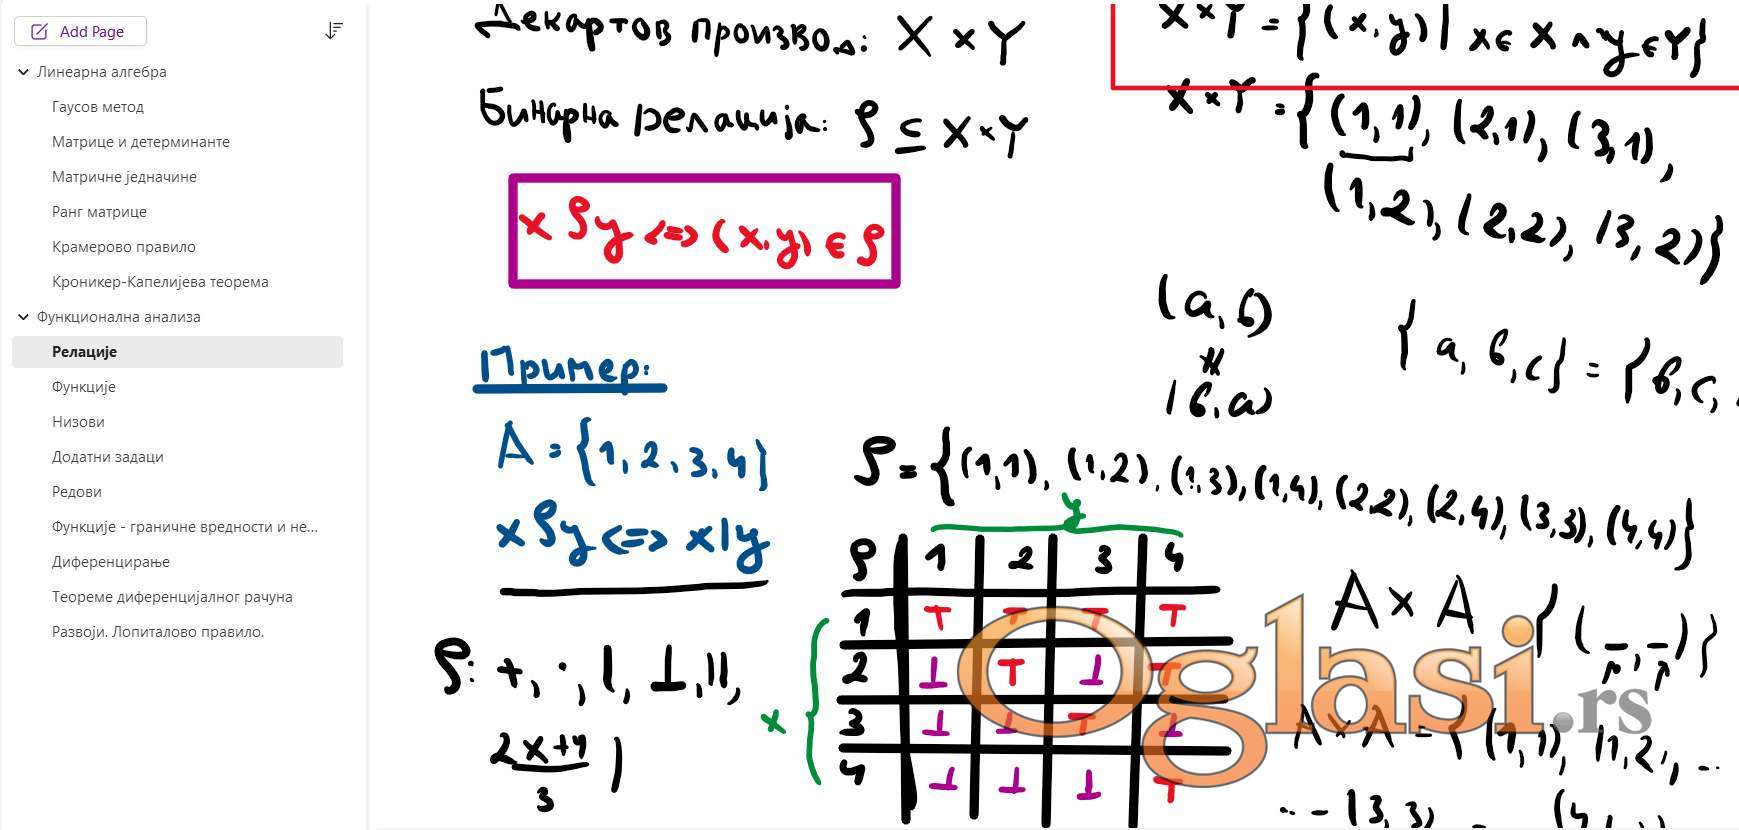 Add Page
Линеарна алгебра
Гаусов метод
Матрице и детерминанте
Матричне једначине
Ранг матрице
Крамерово правило
Кроникер-Капелијева теорема
Функционална анализа
Релације
Функције
Низови
Додатни задаци
Редови
Функције - граничне вредности и не...
Диференцирање
Теореме диференцијалног рачуна
Развоји. Лопиталово правило.
Декартов производ: X × Y
X × Y = {(x, y) | x ∈ X ∧ y ∈ Y}
Бинарна релација: ρ ⊆ X × Y
X × Y = {(1,1), (2,1), (3,1),
(1,2), (2,2), (3,2)}
x ρ y <=> (x, y) ∈ ρ
(a, b)
≠
(b, a)
{a, b, c} = {b, c,
Пример:
A = {1, 2, 3, 4}
x ρ y <=> x | y
ρ = {(1,1), (1,2), (1,3), (1,4), (2,2), (2,4), (3,3), (4,4)}
y
ρ 1 2 3 4
1 T T T T
2 ⊥ T ⊥ T
3 ⊥ ⊥ T ⊥
4 ⊥ ⊥ ⊥ T
x
ρ: +, ·, |, ⊥, ||,
2x+y
3
A × A
{(_, _)}
A × A = {(1,1), (1,2, ...
... (3,3)
Oglasi.rs